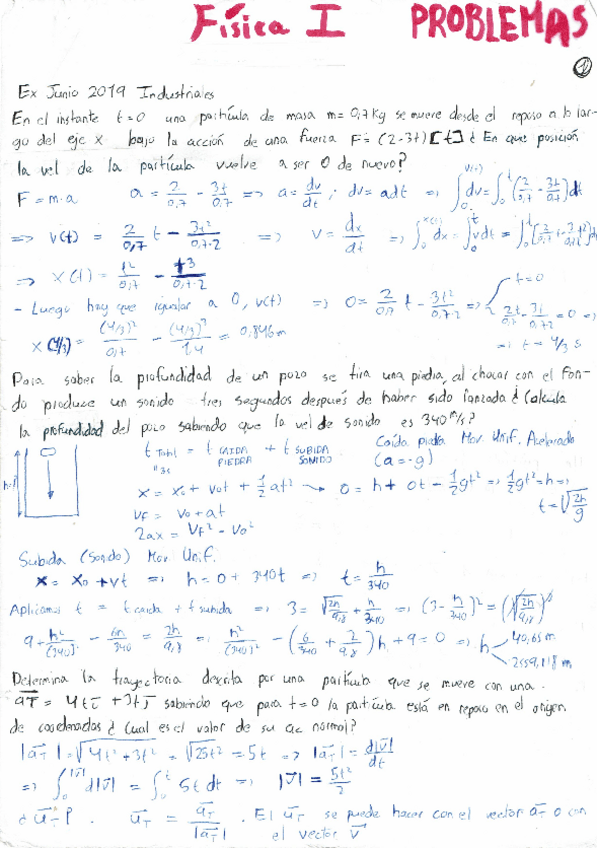 Física I PROBLEMAS
1
Ex Junio 2019 Industriales
En el instante t=0 una partícula de masa m=0,7kg se mueve desde el reposo a lo lar-
go del eje x bajo la acción de una fuerza F=(2-3t)[t] ¿ En que posición
la vel de la partícula vuelve a ser 0 de nuevo?
F = m·a a = 2/0,7 - 3t/0,7 => a = dv/dt ; dv = adt => ∫₀^v(t) dv = ∫₀^t (2/0,7 - 3t/0,7)dt
=> v(t) = 2/0,7 t - 3t²/0,7·2 => v = dx/dt => ∫₀^x(t) dx = ∫₀^t vdt = ∫₀^t [2/0,7 t - 3t²/0,7·2]dt
=> x(t) = t²/0,7 - t³/0,7·2
- Luego hay que igualar a 0, v(t) => 0 = 2/0,7 t - 3t²/0,7·2 => t=0
2t/0,7 - 3t/0,7·2 = 0 =>
=> t = 4/3 s
x(4/3) = (4/3)²/0,7 - (4/3)³/1,4 = 0,846m
Para saber la profundidad de un pozo se tira una piedra, al chocar con el fon-
do produce un sonido tres segundos después de haber sido lanzada ¿ Calcula
la profundidad del pozo sabiendo que la vel de sonido es 340 m/s?
t Total = t CAIDA PIEDRA + t SUBIDA SONIDO
3s
Caída piedra Mov Unif. Acelerado
(a=-g)
h
x = x₀ + v₀t + 1/2 at² → 0 = h + 0t - 1/2 gt² => 1/2 gt² = h =>
t = √2h/g
VF = V₀ + at
2ax = VF² - V₀²
Subida (Sonido) Mov Unif.
x = x₀ + vt => h = 0 + 340t => t = h/340
Aplicamos t = t caida + t subida => 3 = √2h/9,8 + h/340 => (3 - h/340)² = (√2h/9,8)²
9 + h²/(340)² - 6h/340 = 2h/9,8 => h²/(340)² - (6/340 + 2/9,8)h + 9 = 0 => h 40,65 m
2559,118 m
Determina la trayectoria descrita por una partícula que se mueve con una
aT = 4t i + 3t j sabiendo que para t=0 la partícula está en reposo en el origen
de coordenadas ¿ Cual es el valor de su ac normal?
|aT| = √4t² + 3t² = √25t² = 5t => |aT| = d|v|/dt
=> ∫₀^|v| d|v| = ∫₀^t 5t dt => |v| = 5t²/2
¿ uT? . uT = aT/|aT| . El uT se puede hacer con el vector aT o con
el vector v